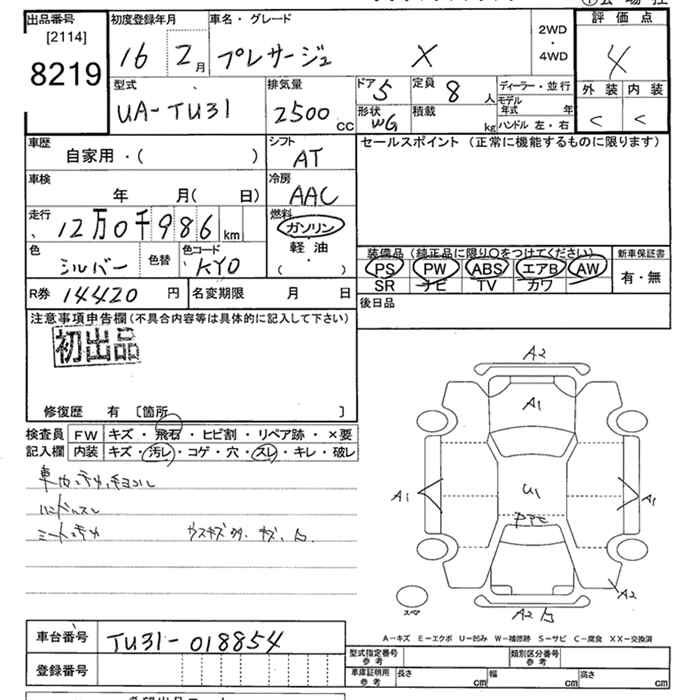 出品番号
[2114]
8219
初度登録年月
16 2 月
車名・グレード
プレサージュ X
2WD
・
4WD
評価点
4
型式
UA-TU31
排気量
2500 CC
ドア 5
定員 8 人
ディーラー・並行
モデル年式 年
ハンドル 左・右
形状 WG
積載 kg
外装 内装
C C
車歴
自家用・( )
シフト
AT
セールスポイント (正常に機能するものに限ります)
車検
年 月( 日)
冷房
AAC
走行
12万0千986 km
燃料
ガソリン
軽油
( ・ )
色
シルバー
色替
色コード
KY0
装備品 (純正品に限り○をつけてください)
新車保証書
PS PW ABS エアB AW
有・無
SR ナビ TV カワ
R券 14420 円
名変期限 月 日
後日品
注意事項申告欄(不具合内容等は具体的に記入して下さい)
初出品
修復歴 有 [箇所 ]
検査員 FW キズ・飛石・ヒビ割・リペア跡・×要
記入欄 内装 キズ・汚レ・コゲ・穴・スレ・キレ・破レ
ハンドルスレ
A2
A1
A1
U1
A1
A2
A2
スペア
A-キズ E-エクボ U-凹み W-補修跡 S-サビ C-腐食 XX-交換済
車台番号
TU31-018854
登録番号
型式指定番号
参考
類別区分番号
参考
車庫証明用
参考
長さ cm
幅 cm
高さ cm